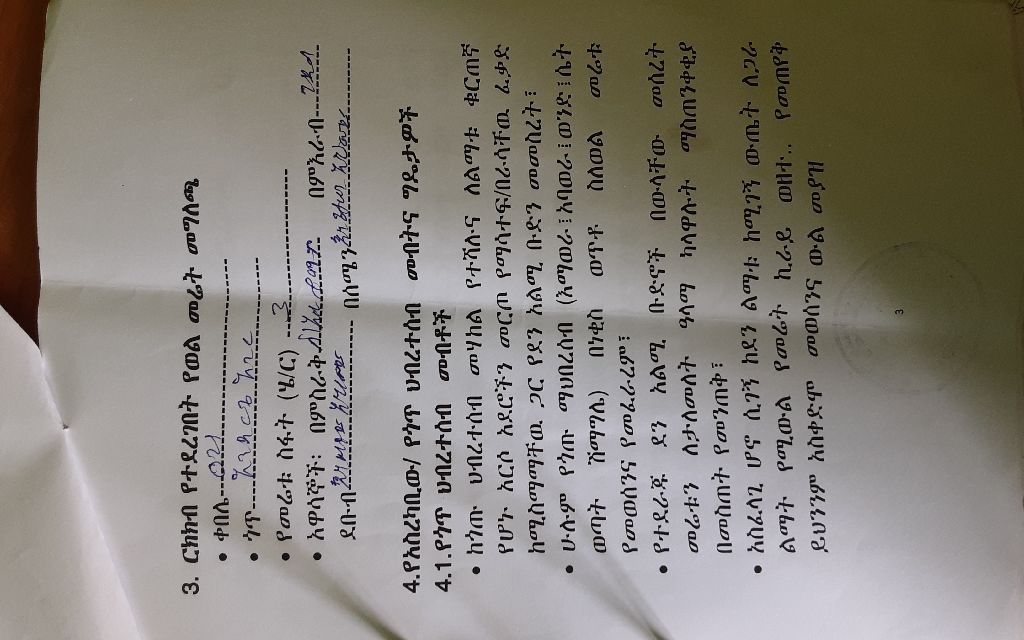 3. ርክክብ የተደረገበት የወል መሬት መግለጫ
• ቀበሌ
• ጎጥ
• የመሬቱ ስፋት (ሄ/ር) 3
• አዋሳኞች፡ በምስራቅ በምእራብ
ደቡብ በሰሜን
4.የአስረካቢው/ የጎጥ ህብረተሰብ መብትና ግዴታዎች
4.1.የጎጥ ህብረተሰብ መብቶች
• ከጎጡ ህብረተሰብ መሃከል የተሻለና ለልማቱ ቁርጠኛ
የሆኑ አርሶ አደሮችን መርጦ የማሳተፍ/በራሳቸዉ ፈቃድ
ከሚስማማቸዉ ጋር የደን አልሚ ቡድን መመስረት፤
• ሁሉም የጎጡ ማህበረሰብ (እማወራ፤አባወራ፤ወንድ፤ሴት
ወጣት ሽማግሌ) በነቂስ ወጥቶ ስለወል መሬቱ
የመወሰንና የመፈራረም፤
• የተደራጁ ደን አልሚ ቡድኖች በውላቸው መሰረት
መሬቱን ለታለመለት ዓላማ ካላዋሉት ማስጠንቀቂያ
በመስጠት የመንጠቅ፤
• አስፈላጊ ሆኖ ሲገኝ ከደን ልማቱ ከሚገኝ ውጤት ለጋራ
ልማት የሚውል የመሬት ኪራይ ወዘተ.. የመጠየቅ
ይህንንም አስቀድሞ መወሰንና ውል መያዝ
3